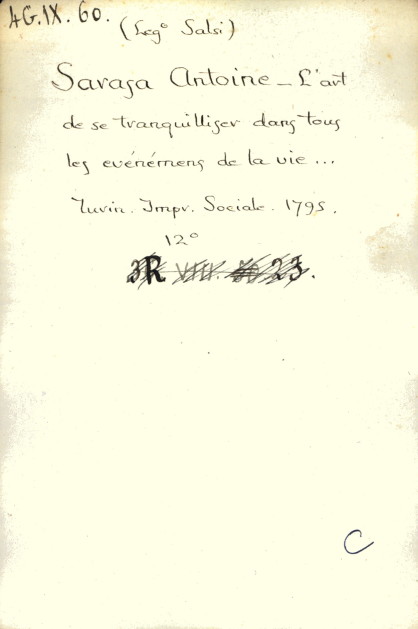 4G.IX.60.
(Leg° Salsi)
Sarasa Antoine _ L'art
de se tranquilliser dans tous
les evénémens de la vie ...
Turin. Impr. Sociale. 1795.
12°
3R VIII. 23.
C